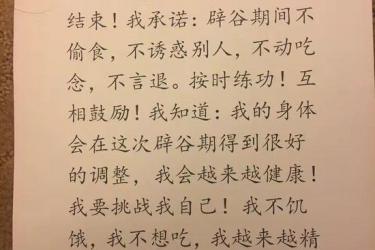 结束！我承诺：辟谷期间不
偷食，不诱惑别人，不动吃
念，不言退。按时练功！互
相鼓励！我知道：我的身体
会在这次辟谷期得到很好
的调整，我会越来越健康！
我要挑战我自己！我不饥
饿，我不想吃，我越来越精